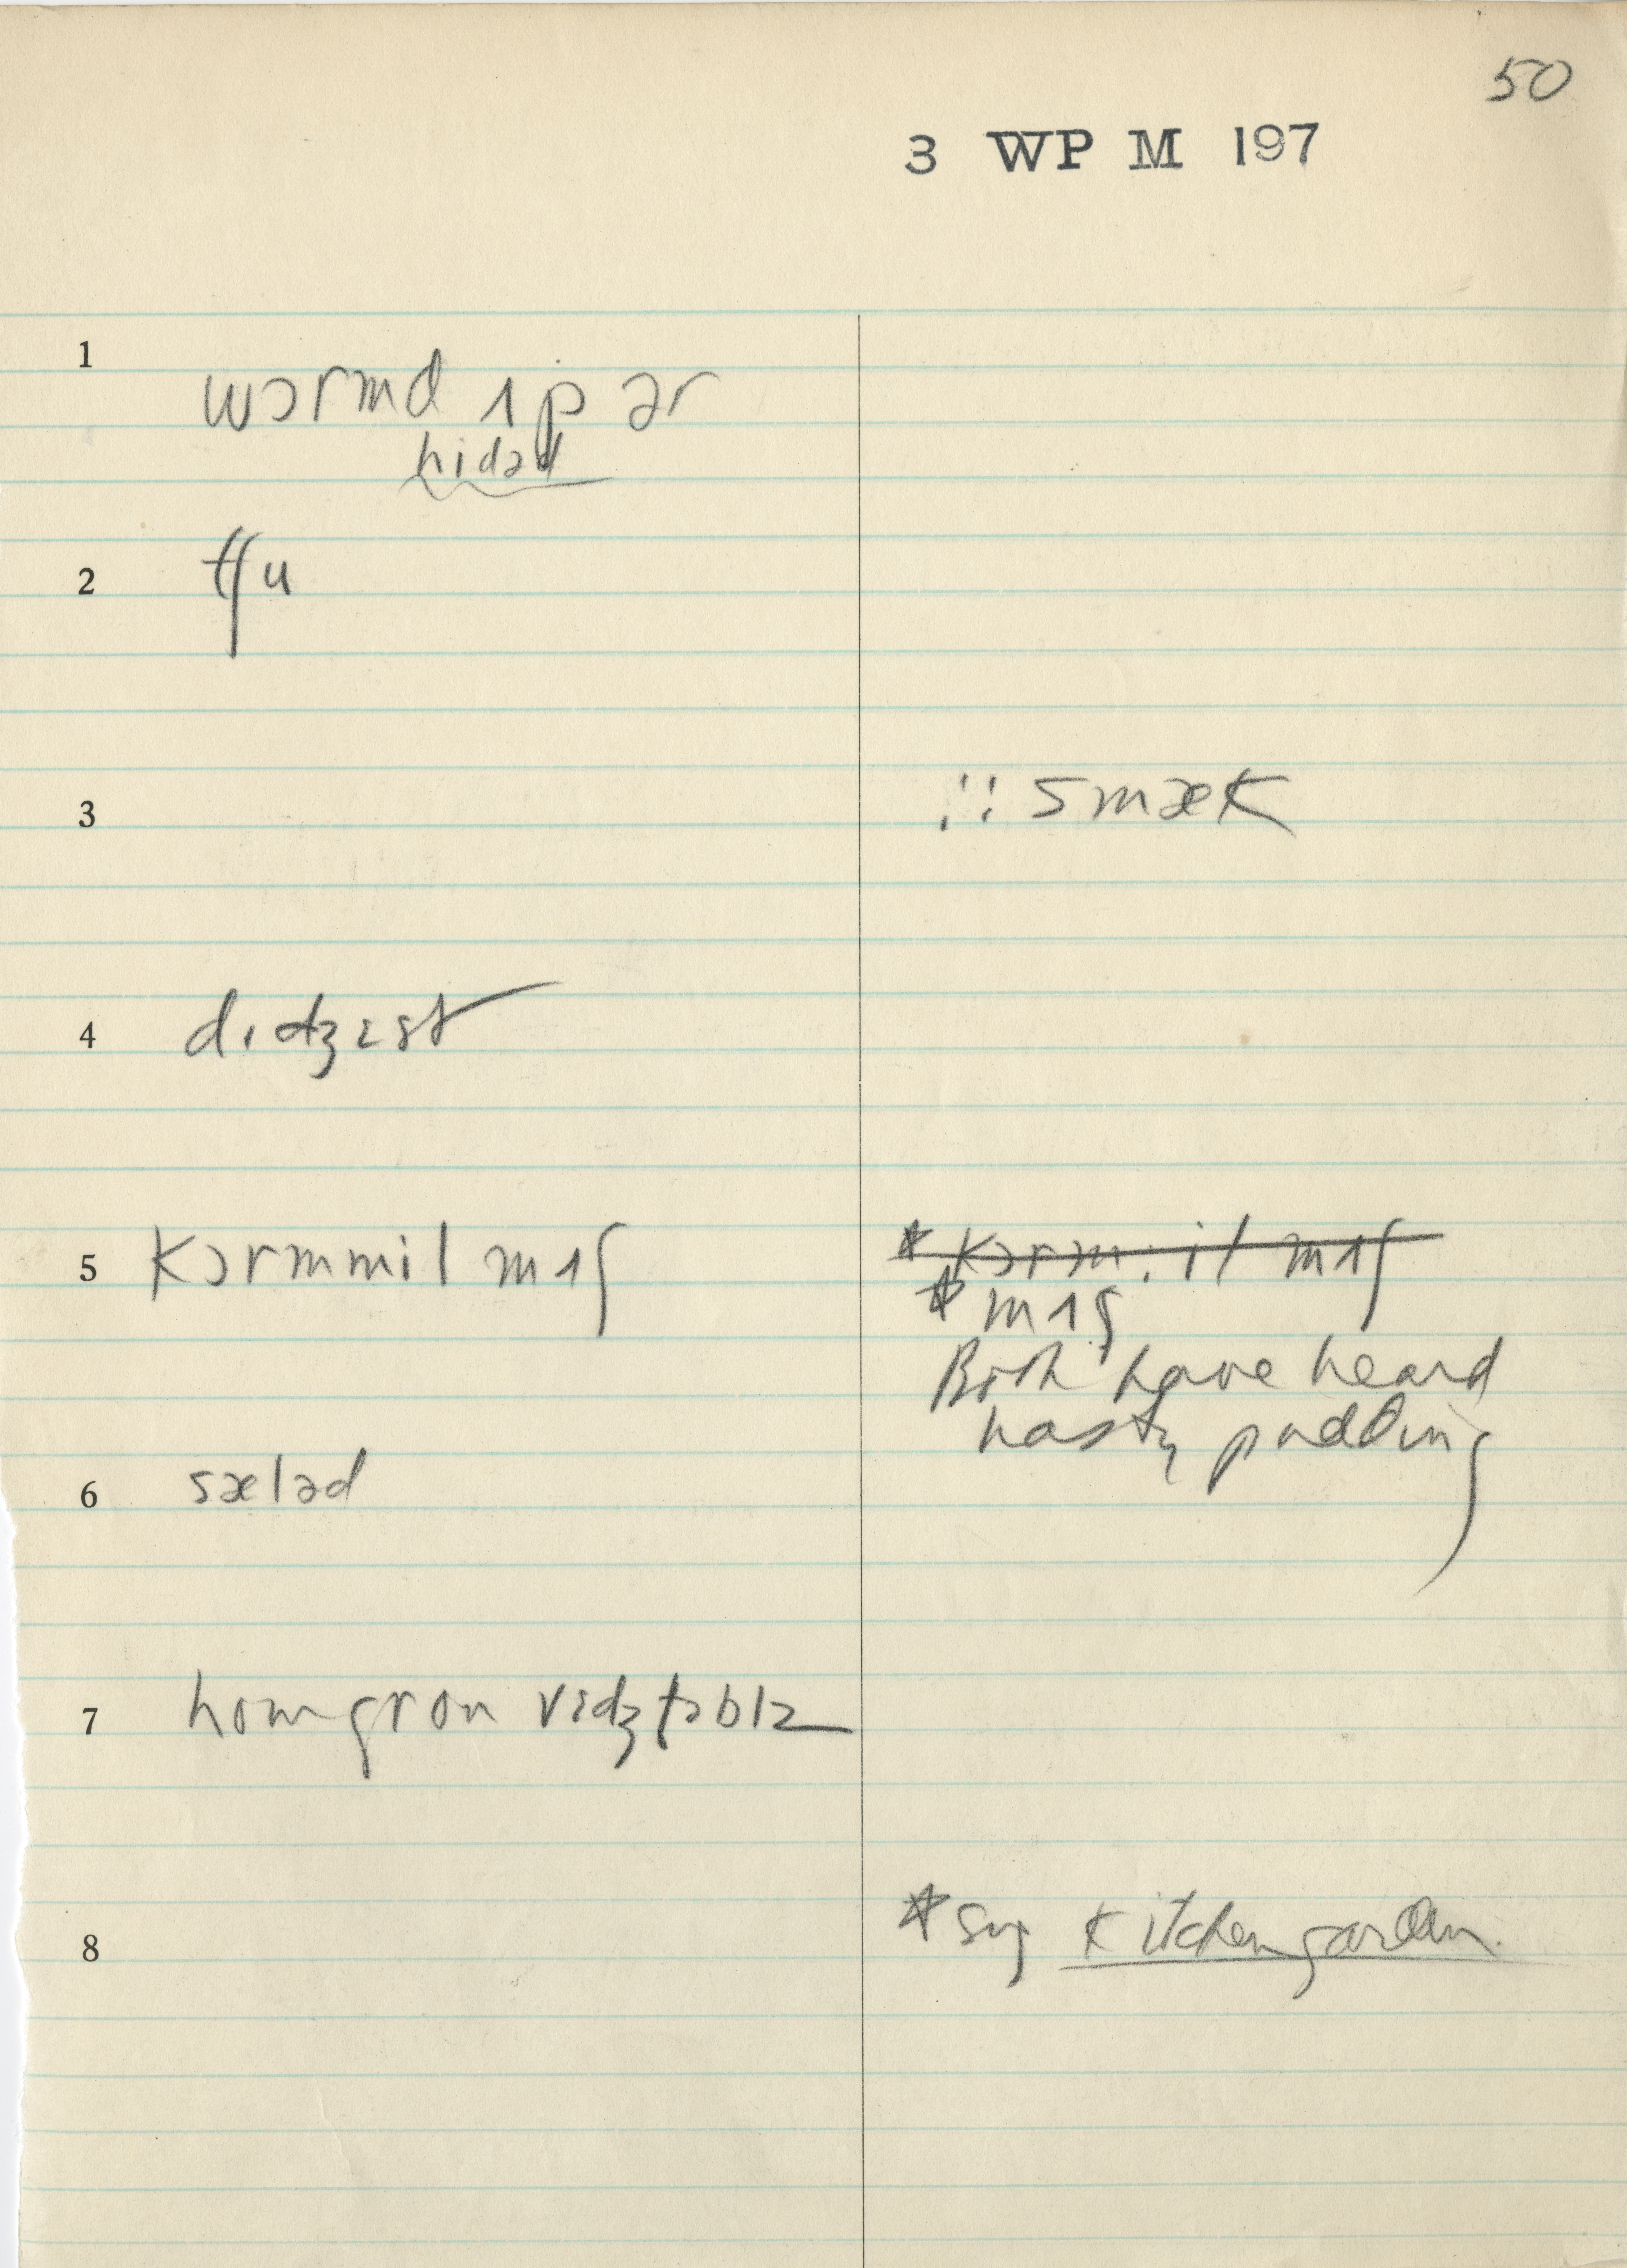 50
3 WP M 197
1 wɔrmd ʌp ər
hidəd
2 tʃu
3 ∴: smæk
4 dɪdʒɛst
5 kɔrmmil mʌʃ
* kɔrm:il mʌʃ
* mʌʃ
Both have heard
hasty pudding
6 sæləd
7 homgron vɪdʒtəblz
8 * sug kitchen garden.